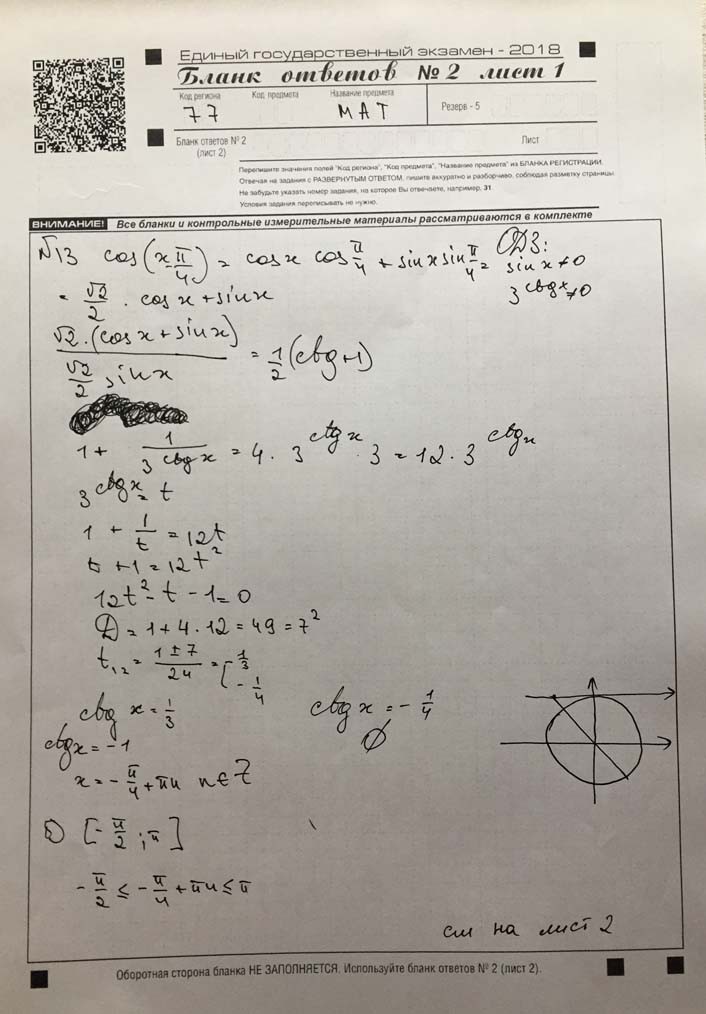 Единый государственный экзамен - 2018
Бланк ответов № 2 лист 1
Код региона Код предмета Название предмета
Резерв - 5
77 МАТ
Бланк ответов № 2
(лист 2)
Лист
Перепишите значения полей "Код региона", "Код предмета", "Название предмета" из БЛАНКА РЕГИСТРАЦИИ.
Отвечая на задания с РАЗВЕРНУТЫМ ОТВЕТОМ, пишите аккуратно и разборчиво, соблюдая разметку страницы.
Не забудьте указать номер задания, на которое Вы отвечаете, например, 31.
Условия задания переписывать не нужно.
ВНИМАНИЕ! Все бланки и контрольные измерительные материалы рассматриваются в комплекте
№13 cos(x-π/4) = cos x cos π/4 + sin x sin π/4 =
ОДЗ:
sin x ≠ 0
3^ctgx ≠ 0
= √2/2 · cos x + sin x
√2·(cos x + sin x) / (√2/2 sin x) = 1/2 (ctg+1)
1 + 1/3^ctgx = 4 · 3^ctgx · 3 = 12 · 3^ctgx
3^ctgx = t
1 + 1/t = 12t
t + 1 = 12t²
12t² - t - 1 = 0
D = 1 + 4·12 = 49 = 7²
t₁,₂ = (1 ± 7)/24 = [ 1/3
- 1/4
ctg x = 1/3 ctg x = - 1/4
ctgx = -1 ∅
x = - π/4 + πn n ∈ Z
б) [- π/2 ; π]
- π/2 ≤ - π/4 + πn ≤ π
см на лист 2
Оборотная сторона бланка НЕ ЗАПОЛНЯЕТСЯ. Используйте бланк ответов № 2 (лист 2).